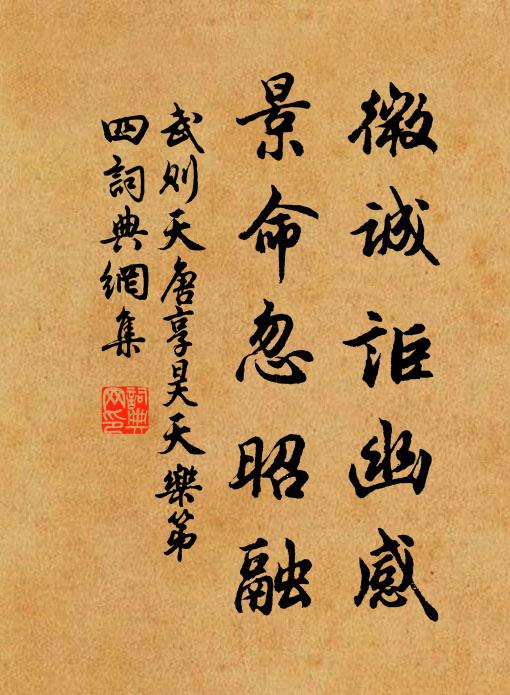 微誠詎幽感
景命忽昭融
武则天唐享昊天樂第
四詞典網集
詞典
网印